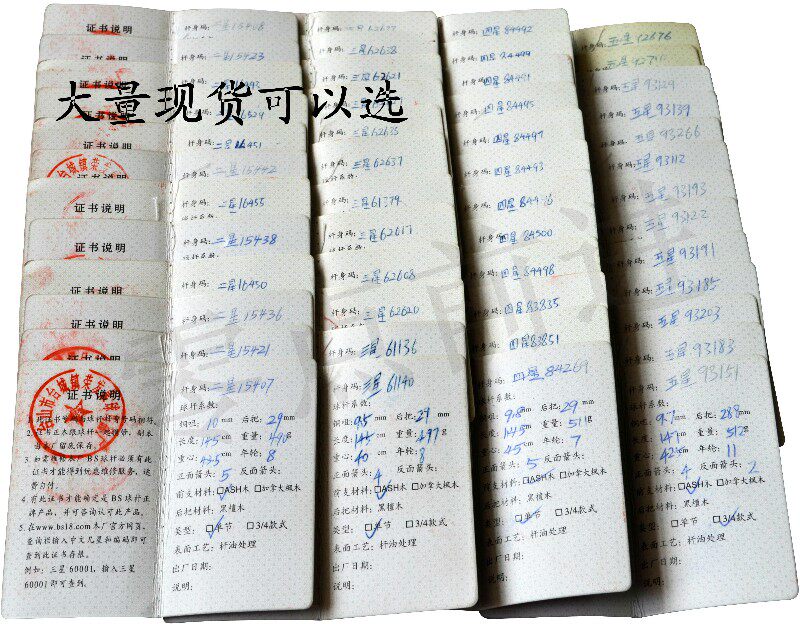 大量现货可以选
证书说明
证书说明
证书说明
证书说明
证书说明
证书说明
证书说明
证书说明
证书说明
证书说明
3.如需维修本厂BS球杆必须有此
证书才能得到优惠维修服务,运
费自付.
4.有此证书才能确定是BS球杆正
牌产品,并可咨询认可此产品.
5.在www.bs18.com本厂官方网页,
查询栏输入中文几星和编码即可
查到此证书存根.
例如:三星60001,输入三星
60001即可查到.
杆身码:二星15408
杆身码:二星15423
杆身码:二星16451
杆身码:二星15442
杆身码:二星16455
杆身码:二星15438
杆身码:二星16450
杆身码:二星15436
杆身码:二星15421
杆身码:二星15407
球杆系数:
铜咀:10mm 后把:29mm
长度:145cm 重量:490g
重心:45cm 年轮:8
正面箭头:5 反面箭头:
前支材料:☑ASH木 □加拿大枫木
后把材料:黑檀木
类型:☑单节 □3/4款式
表面工艺:杆油处理
出厂日期:
说明:
杆身码:三星62638
杆身码:三星62621
杆身码:三星62635
杆身码:三星62637
杆身码:三星61374
杆身码:三星62617
杆身码:三星62608
杆身码:三星62620
杆身码:三星61136
杆身码:三星61140
球杆系数:
铜咀:9.5mm 后把:29mm
重心:40cm 年轮:8
正面箭头:4 反面箭头:
前支材料:☑ASH木 □加拿大枫木
后把材料:黑檀木
类型:☑单节 □3/4款式
表面工艺:杆油处理
出厂日期:
说明:
杆身码:四星84492
杆身码:四星84499
杆身码:四星84491
杆身码:四星84495
杆身码:四星84497
杆身码:四星84493
杆身码:四星84500
杆身码:四星84498
杆身码:四星83835
杆身码:四星83851
杆身码:四星84269
球杆系数:
铜咀:9.8mm 后把:29mm
长度:145cm 重量:511g
重心:45cm 年轮:7
正面箭头:5 反面箭头:
前支材料:☑ASH木 □加拿大枫木
后把材料:黑檀木
类型:☑单节 □3/4款式
表面工艺:杆油处理
出厂日期:
说明:
杆身码:五星92676
杆身码:五星93129
杆身码:五星93139
杆身码:五星93266
杆身码:五星93112
杆身码:五星93193
杆身码:五星93122
杆身码:五星93191
杆身码:五星93185
杆身码:五星93203
杆身码:五星93183
杆身码:五星93151
球杆系数:
铜咀:9.7mm 后把:28.8mm
长度:145cm 重量:512g
年轮:11
正面箭头:4 反面箭头:2
前支材料:☑ASH木 □加拿大枫木
后把材料:黑檀木
类型:☑单节 □3/4款式
表面工艺:杆油处理
出厂日期:
说明: